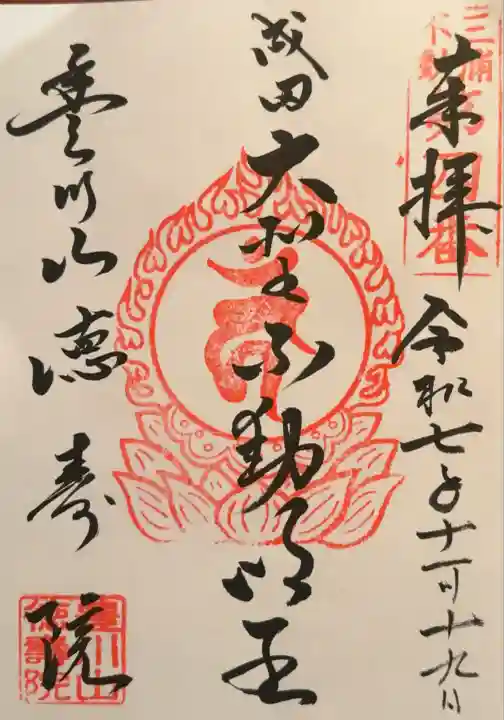 奉拝 令和七年十一月十九日
成田大聖不動明王
豊川山徳寿院
豊川山
徳壽院